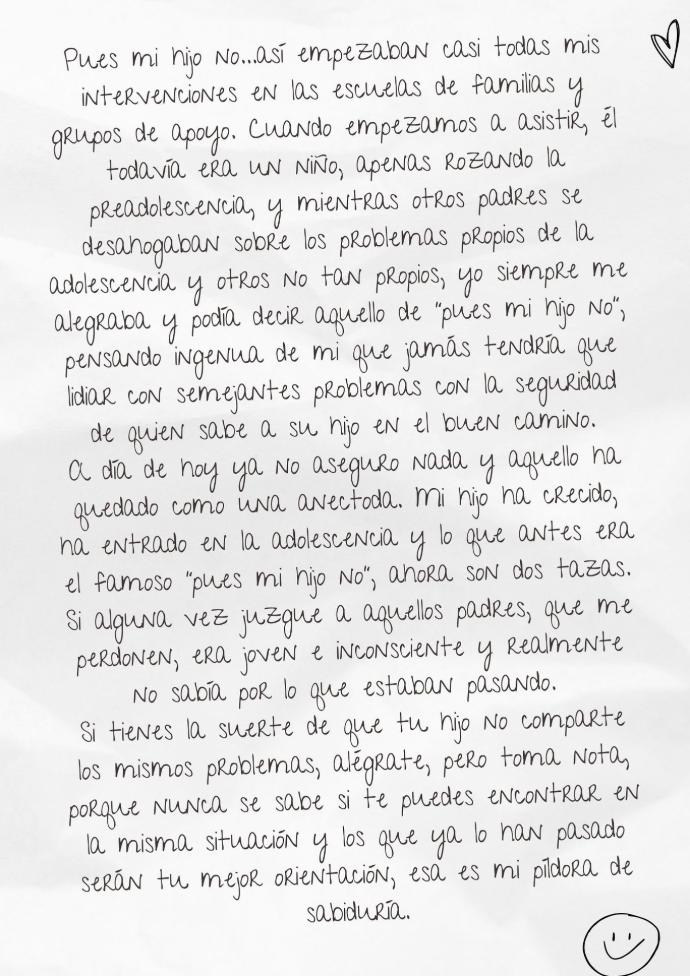 Pues mi hijo no...así empezaban casi todas mis
intervenciones en las escuelas de familias y
grupos de apoyo. Cuando empezamos a asistir, él
todavía era un niño, apenas rozando la
preadolescencia, y mientras otros padres se
desahogaban sobre los problemas propios de la
adolescencia y otros no tan propios, yo siempre me
alegraba y podía decir aquello de "pues mi hijo no",
pensando ingenua de mi que jamás tendría que
lidiar con semejantes problemas con la seguridad
de quien sabe a su hijo en el buen camino.
A día de hoy ya no aseguro nada y aquello ha
quedado como una anectoda. Mi hijo ha crecido,
ha entrado en la adolescencia y lo que antes era
el famoso "pues mi hijo no", ahora son dos tazas.
Si alguna vez juzgue a aquellos padres, que me
perdonen, era joven e inconsciente y realmente
no sabía por lo que estaban pasando.
Si tienes la suerte de que tu hijo no comparte
los mismos problemas, alégrate, pero toma nota,
porque nunca se sabe si te puedes encontrar en
la misma situación y los que ya lo han pasado
serán tu mejor orientación, esa es mi píldora de
sabiduría.